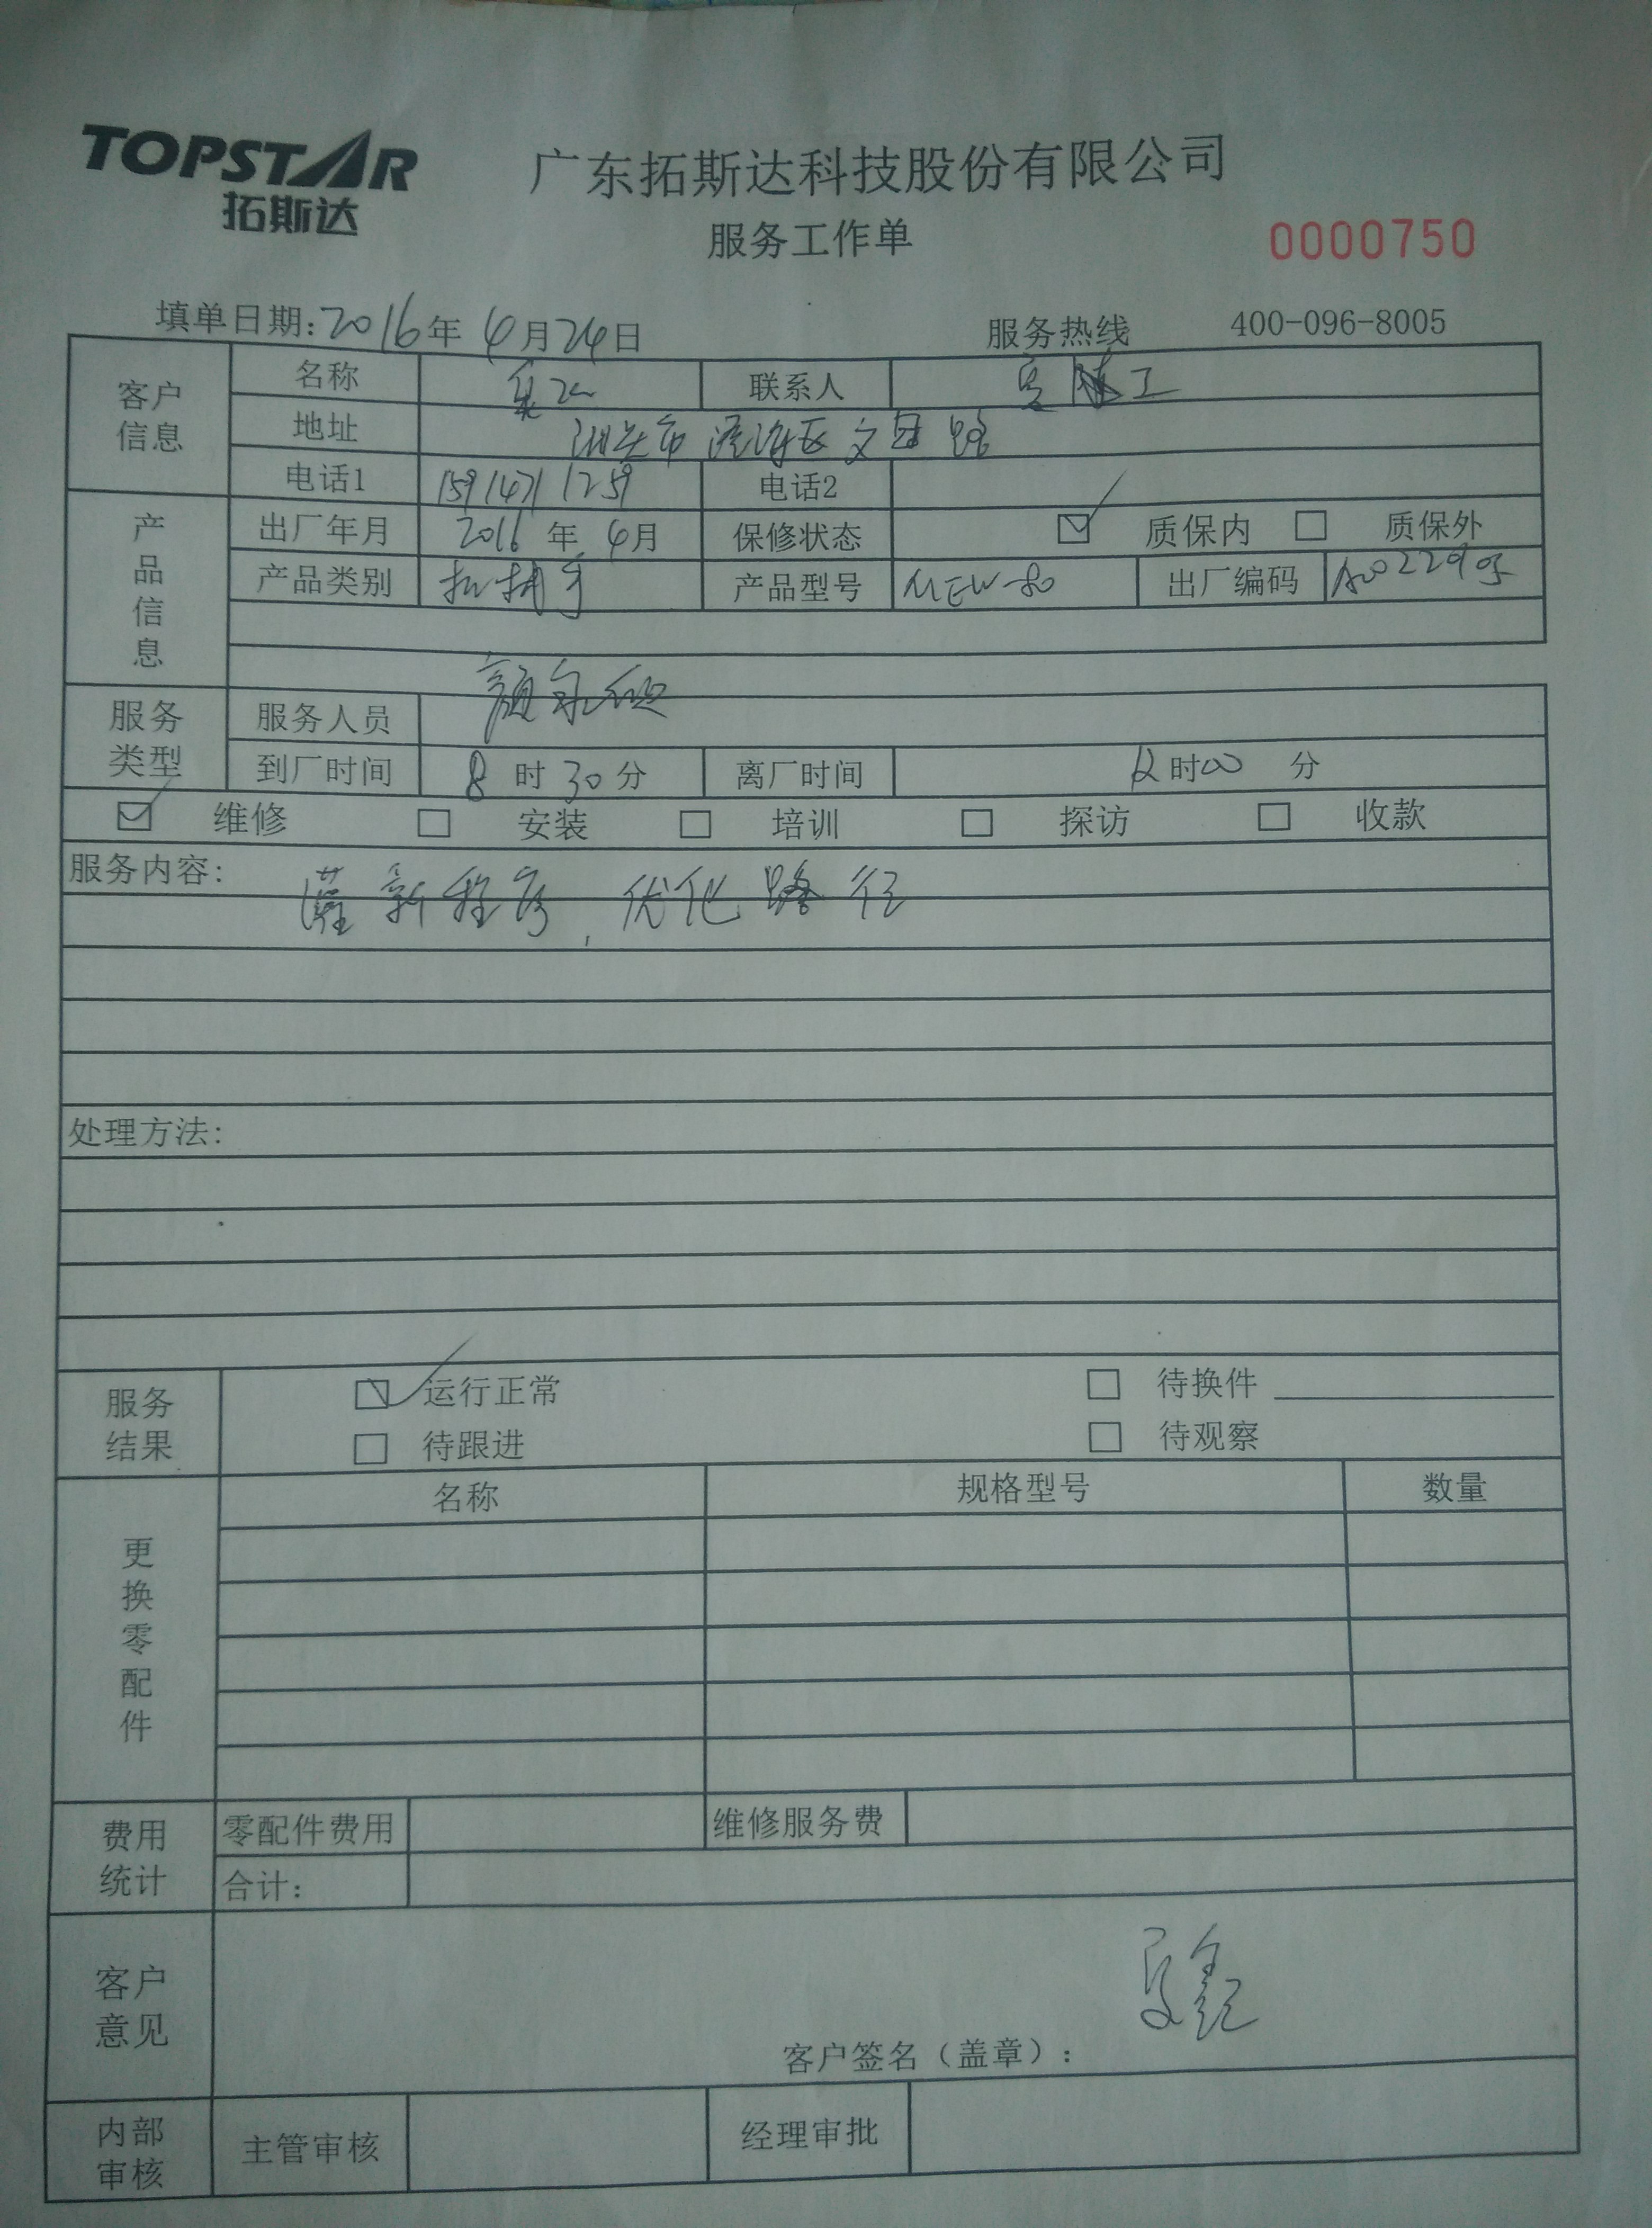 TOPSTAR
拓斯达
广东拓斯达科技股份有限公司
服务工作单
0000750
填单日期:2016年4月24日 服务热线 400-096-8005
客户信息
名称 联系人 夏 工
地址 汕头市澄海区文冠路
电话1 15914711259 电话2
产品信息
出厂年月 2016年4月 保修状态 ☑ 质保内 □ 质保外
产品类别 机械手 产品型号 MEW-80 出厂编码
服务类型
服务人员 颜
到厂时间 8时30分 离厂时间 12时00分
☑ 维修 □ 安装 □ 培训 □ 探访 □ 收款
服务内容:
灌新程序,优化路径
处理方法:
服务结果
☑ 运行正常 □ 待换件
□ 待跟进 □ 待观察
更换零配件
名称 规格型号 数量
费用统计
零配件费用 维修服务费
合计:
客户意见
客户签名(盖章):
内部审核
主管审核 经理审批